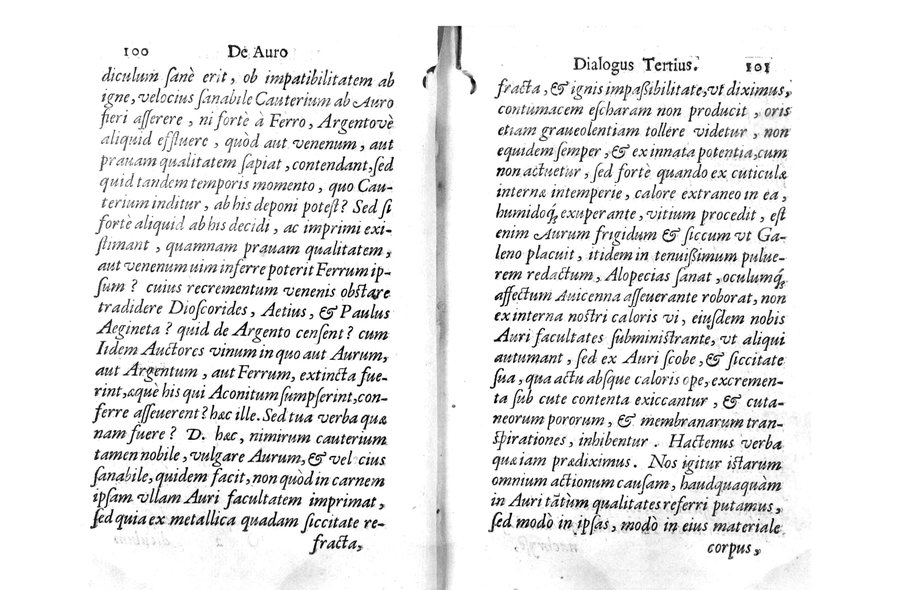 100 De Auro
diculum ſanè erit, ob impatibilitatem ab
igne, velocius ſanabile Cauterium ab Auro
fieri aſſerere, ni fortè à Ferro, Argentovè
aliquid effluere, quòd aut venenum, aut
prauam qualitatem ſapiat, contendant, ſed
quid tandem temporis momento, quo Cau-
terium inditur, ab his deponi poteſt? Sed ſi
fortè aliquid ab his decidi, ac imprimi exi-
ſtimant, quamnam prauam qualitatem,
aut venenum uim inferre poterit Ferrum ip-
ſum? cuius recrementum venenis obſtare
tradidere Dioſcorides, Aetius, & Paulus
Aegineta? quid de Argento cenſent? cum
Iidem Auctores vinum in quo aut Aurum,
aut Argentum, aut Ferrum, extincta fue-
rint, æquè his qui Aconitum ſumpſerint, con-
ferre aſſeuerent? hæc ille. Sed tua verba quæ
nam fuere? D. hæc, nimirum cauterium
tamen nobile, vulgare Aurum, & vel cius
ſanabile, quidem facit, non quòd in carnem
ipſam vllam Auri facultatem imprimat,
ſed quia ex metallica quadam ſiccitate re-
fracta,
Dialogus Tertius. 101
fracta, & ignis impaſſibilitate, vt diximus,
contumacem eſcharam non producit, oris
etiam graueolentiam tollere videtur, non
equidem ſemper, & ex innata potentia, cum
non actuetur, ſed fortè quando ex cuticulæ
internæ intemperie, calore extraneo in ea,
humidoq́; exuperante, vitium procedit, eſt
enim Aurum frigidum & ſiccum vt Ga-
leno placuit, itidem in tenuiſſimum pulue-
rem redactum, Alopecias ſanat, oculumq́;
affectum Auicenna aſſeuerante roborat, non
ex interna noſtri caloris vi, eiuſdem nobis
Auri facultates ſubminiſtrante, vt aliqui
autumant, ſed ex Auri ſcobe, & ſiccitate
ſua, qua actu abſque caloris ope, excremen-
ta ſub cute contenta exiccantur, & cuta-
neorum pororum, & membranarum tran-
ſpirationes, inhibentur. Hactenus verba
quæ iam prædiximus. Nos igitur iſtarum
omnium actionum cauſam, haudquaquàm
in Auri tãtùm qualitates referri putamus,
ſed modò in ipſas, modò in eius materiale
corpus,